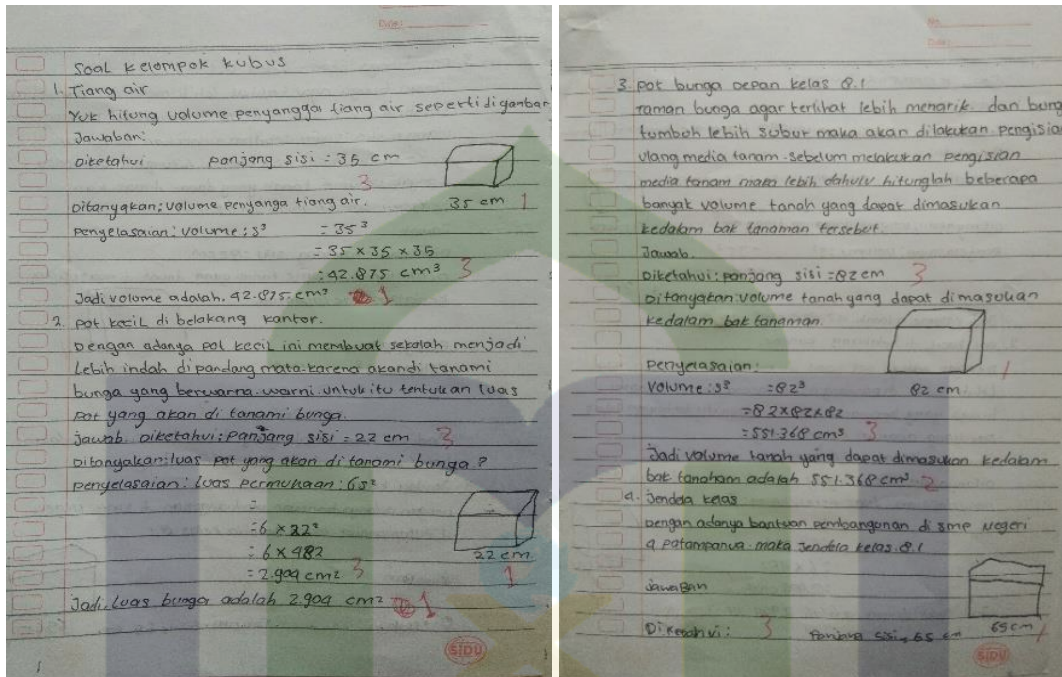 Date:
Soal Kelompok kubus
1. Tiang air
Yuk hitung volume penyangga tiang air seperti digambar
Jawaban:
Diketahui panjang sisi = 35 cm
3
Ditanyakan; volume penyanga tiang air. 35 cm 1
Pengelasaian: volume: s³ = 35³
= 35 × 35 × 35
= 42.875 cm³ 3
Jadi volume adalah. 42.875. cm³ 1
2. Pot kecil di belakang kantor.
Dengan adanya pot kecil ini membuat sekolah menjadi
Lebih indah dipandang mata karena akandi tanami
bunga yang berwarna-warni. untuk itu tentukan luas
Pot yang akan di tanami bunga.
jawab. Diketahui: Panjang sisi = 22 cm 3
Ditanyakan: luas pot yang akan di tanami bunga?
penyelasaian: luas permukaan: 6s²
=
= 6 × 22²
= 6 × 482 22 cm
= 2.904 cm² 3 1
Jadi. Luas bunga adalah 2.904 cm² 1
SIDU
No.
Date:
3. Pot bunga Depan kelas 8.1
Taman bunga agar terlihat lebih menarik dan bung
tumboh lebih subur maka akan dilakukan pengisia
ulang media tanam. Sebelum melakukan pengisian
media tanam maka lebih dahulu hitunglah beberapa
banyak volume tanah yang dapat dimasukan
kedalam bak tanaman tersebut.
Jawab.
Diketahui: panjang sisi = 82 cm 3
Ditanyakan: volume tanah yang dapat dimasukan
kedalam bak tanaman.
Penyelasaian: 1
Volume: s³ = 82³ 82 cm
= 82×82×82
= 551.368 cm³ 3
Jadi volume tanah yang dapat dimasukan kedalam
bak tanaham adalah 551.368 cm³ 2
4. Jendela kelas
Dengan adanya bantuan pembangunan di smp Negeri
4 patampanua. maka jendela kelas 8.1
jawaban
Diketahui: 3 Panjang sisi = 65 cm 65 cm 1
SIDU